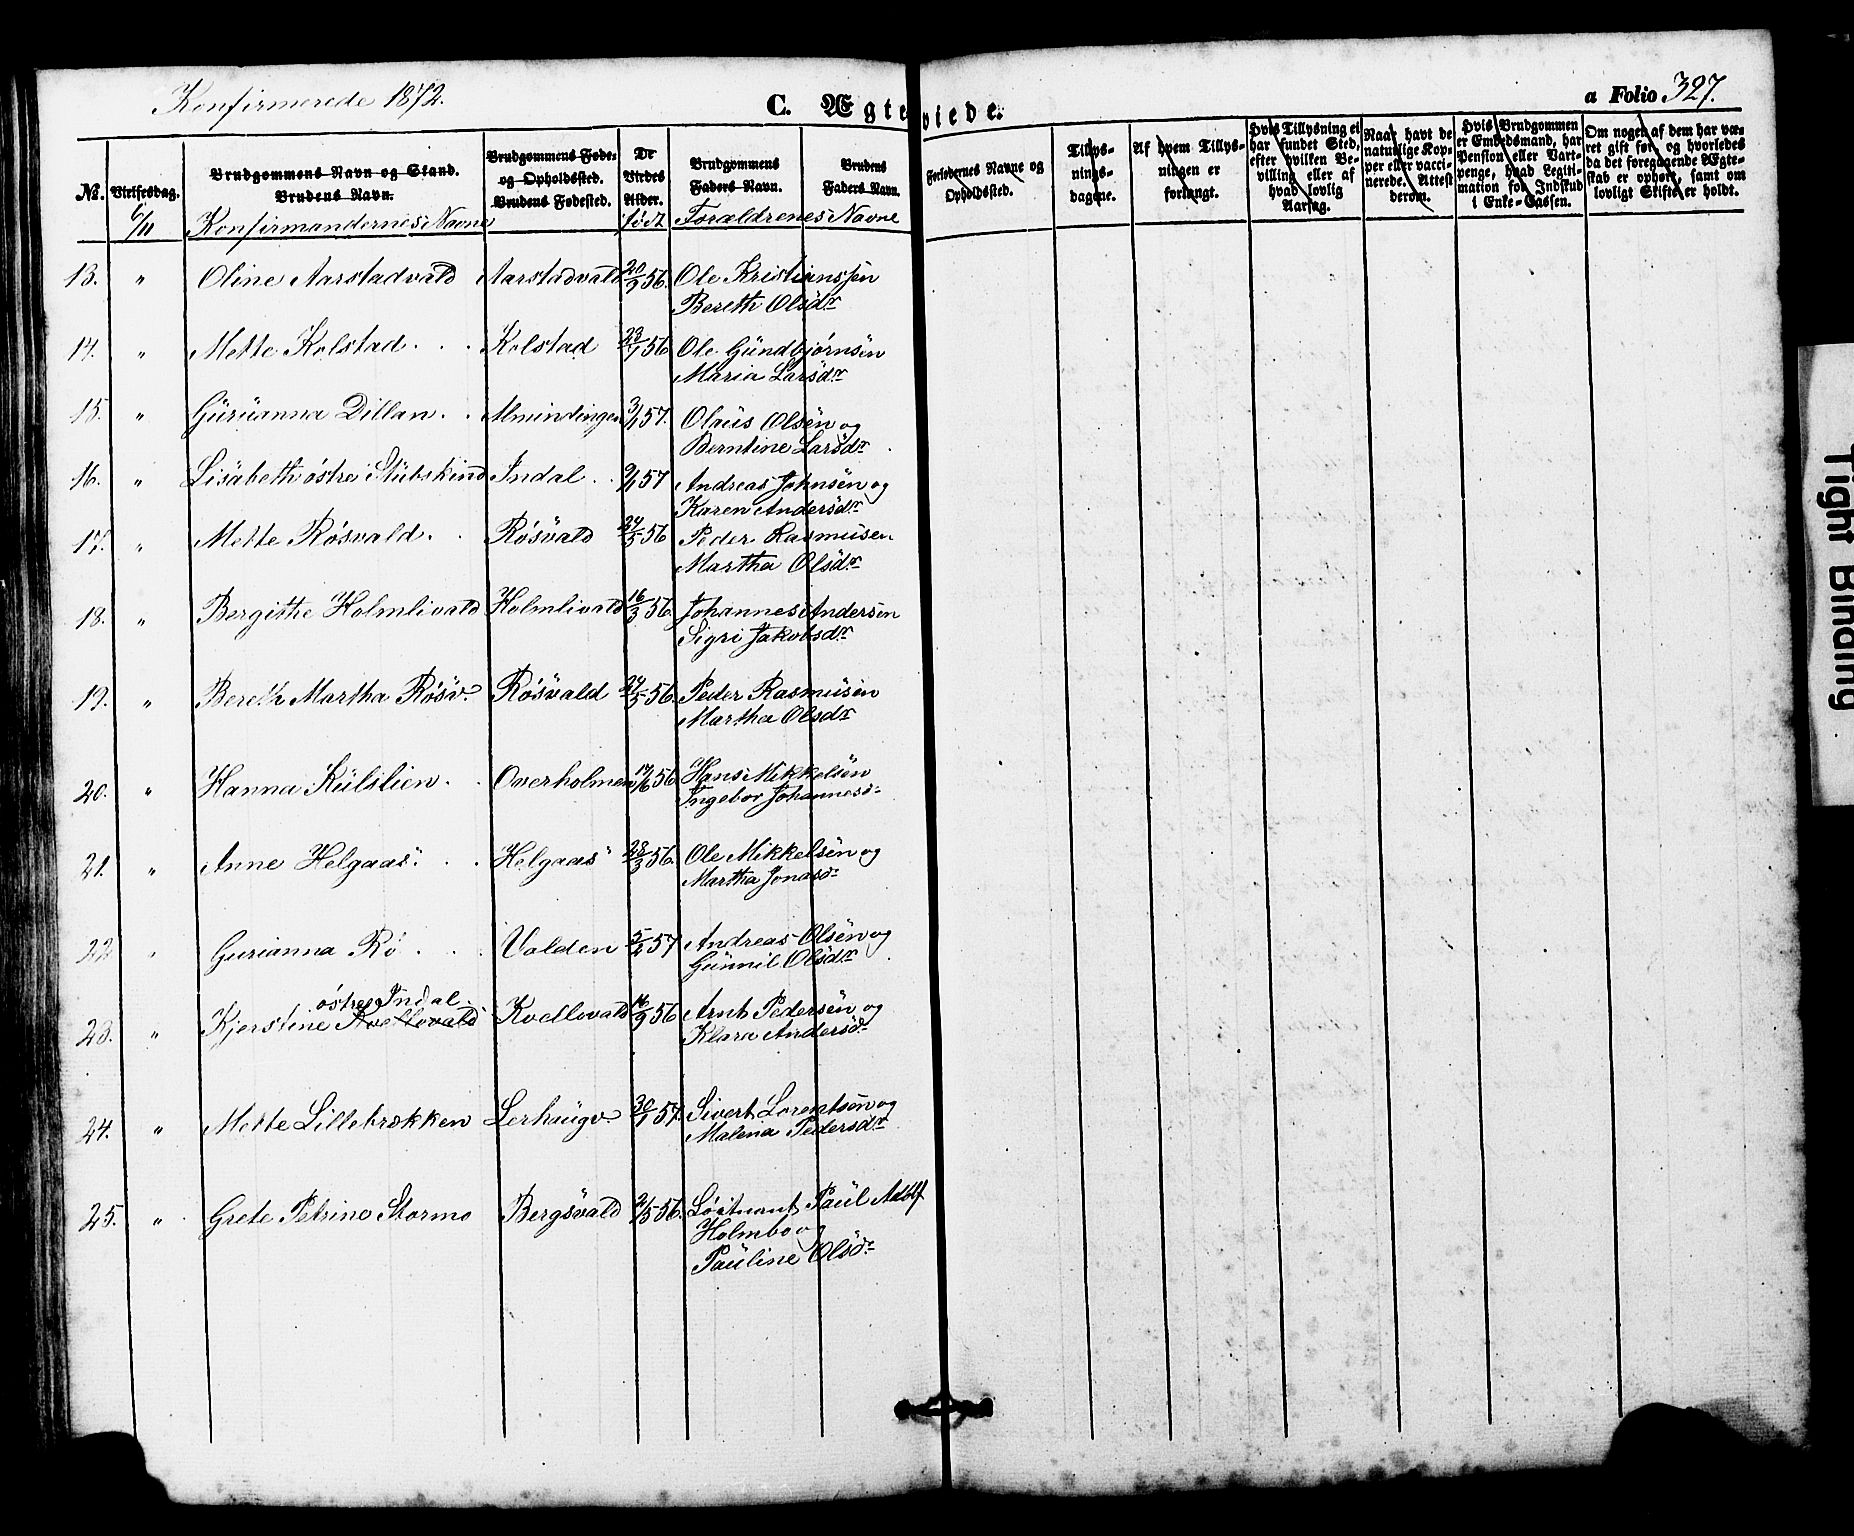 Konfirmerede 1872.
C. Ægteviede.
a Folio 327.
No.
Vielsesdag.
Brudgommens Navn og Stand.
Brudens Navn.
Brudgommens Føde-
og Opholdssted.
Brudens Fødested.
De
Viedes
Alder.
Brudgommens
Faders Navn.
Brudens
Faders Navn.
Forlovernes Navne og
Opholdssted.
Tillys-
nings-
dagene.
Af hvem Tillys-
ningen er
forlangt.
Hvis Tillysning ei
har fundet Sted,
efter hvilken Be-
villing eller af
hvad lovlig
Aarsag.
Naar havt de
naturlige Kop-
per eller vacci-
nerede. Attest
derom.
Hvis Brudgommen
er Embedsmand, har
Pension eller Vart-
penge, hvad Legiti-
mation for Indskud
i Enke-Cassen.
Om nogen af dem har væ-
ret gift før, og hvorledes
da det foregaaende Ægte-
skab er ophørt, samt om
lovligt Skifte er holdt.
6/11 Konfirmandernes Navne født Forældrenes Navne
13. " Oline Aarstadvald Aarstadvald 20/9 56. Ole Kristianssen
Bereth Olsdr
14. " Mette Kolstad . . . Kolstad 23/1 56 Ole Gundbjørnsen
Maria Larsdr
15. " Gurianna Dillan . . Almindingen 3/1 57. Olaus Olsen og
Berntine Larsdr
16. " Lisabeth østre Stubskind Indal . . 9/1 57 Andreas Johnsen og
Karen Andersdr
17. " Mette Røsvald . . Røsvald 24/5 56 Peder Rasmusen
Martha Olsdr
18. " Bergithe Holmlivald Holmlivald 16/3 56. Johannes Andersen
Sigri Jakobsdr
19. " Bereth Martha Røsv. Røsvald 24/5 56. Peder Rasmusen
Martha Olsdr
20. " Hanna Kulslien . . Overholmen 17/6 56 Hans Mikkelsen
Ingebor Johannesd.
21. " Anne Helgaas . . Helgaas 28/3 56. Ole Mikkelsen og
Martha Jonasd.
22 " Gurianna Rø . . . Valden 5/2 57 Andreas Olsen og
Gunnil Olsdr
østre Indal.
23. " Kjerstine Kvellovald Kvellovald 16/9 56 Arnt Pedersen og
Klara Andersd.
24. " Mette Lillebrækken Lerhaugv. 30/1 57. Sivert Lorentsen og
Malena Pedersdr
25. " Grete Petrine Stormo Bergsvald 2/5 56. Løitnant Paul Adolf
Holmbo og
Pauline Olsd.
Tight Binding